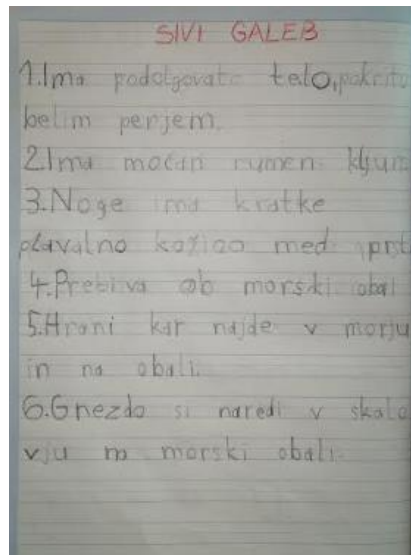 SIVI GALEB
1.Ima podolgovato telo,pokrito
belim perjem.
2.Ima močan rumen kljun
3.Noge ima kratke
plavalno kožico med prst
4.Prebiva ob morski obal
5.Hrani kar najde v morju
in na obali.
6.Gnezdo si naredi v skalo
vju na morski obali.